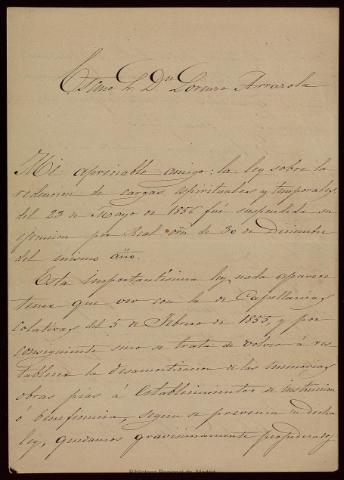 Exmo Sr Dn Lorenzo Arrazola
Mi apreciable amigo: la ley sobre la
redencion de cargas espirituales y temporales
del 23 de Mayo de 1856 fué suspendida su
egecucion por Real orn. de 30 de Diciembre
del mismo año.
Esta importantisima ley nada aparece
tener que ver con la de Capellanias
colativas del 5 de Febrero de 1855, y por
consiguiente sino se trata de volver á res
tablecer la desamortizacion de las
obras pias á establecimientos de instruccion
ó beneficencia, segun se prevenia en dicha
ley, quedamos gravisimamente perjudicados
Biblioteca Regional de Madrid